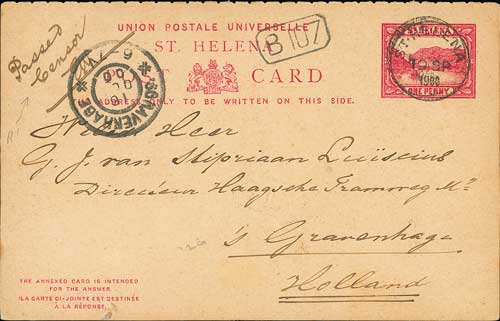 UNION POSTALE UNIVERSELLE
ST. HELENA
POST CARD
THE ADDRESS ONLY TO BE WRITTEN ON THIS SIDE.
Passed
Censor
B 107
'S GRAVENHAGE
ST. HELENA
1900
ONE PENNY
Heer
G. J. van Stipriaan Luïscius
Directeur Haagsche Tramweg Mij
's Gravenhage
Holland
THE ANNEXED CARD IS INTENDED
FOR THE ANSWER.
(LA CARTE CI-JOINTE EST DESTINÉE
À LA RÉPONSE.